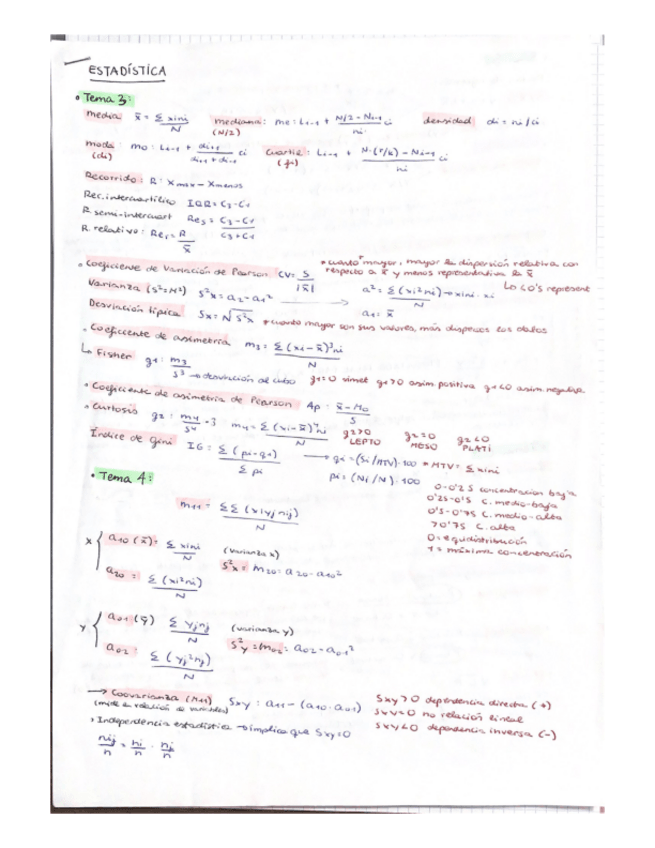 ESTADÍSTICA
• Tema 3:
media x̄ = Σ xini / N mediana: me: Li-1 + N/2 - Ni-1 / ni · ci densidad di = ni/ci
(N/2)
moda: mo: Li-1 + di+1 / di+1 + di-1 ci Cuartil: Li-1 + N·(r/k) - Ni-1 / ni ci
(di)
Recorrido: R: Xmax - Xmenos
Rec. intercuartílico IQR = C3 - C1
R. semi-intercuart Res = C3 - C1 / C3 + C1
R. relativo: Rer = R / x̄
• Coeficiente de Variación de Pearson CV = S / |x̄| * cuanto mayor, mayor la dispersión relativa con respecto a x̄ y menos representativa la x̄
Varianza (s²=M²) s²x = a2 - a1² → a² = Σ (xi²ni) / N → xini · xi
a1 = x̄
Desviación típica Sx = √s²x * cuanto mayor son sus valores, más dispersos los datos
• Coeficiente de asimetría m3 = Σ (xi - x̄)³ni / N
↳ Fisher g1: m3 / s³ → desviación al cubo g1=0 simet g1>0 asim. positiva g1<0 asim. negativa
• Coeficiente de asimetría de Pearson Ap: x̄ - Mo / S
• Curtosis g2: m4 / s⁴ - 3 m4 = Σ (xi - x̄)⁴ni / N g2>0 LEPTO g2=0 MESO g2<0 PLATI
Índice de Gini IG = Σ (pi - qi) / Σ pi → qi = (Si/MTV)·100 * MTV = Σ xini
pi = (Ni/N)·100
0-0'25 concentracion baja
0'25-0'5 C. medio-baja
0'5-0'75 C. medio-alta
>0'75 C. alta
0 = equidistribución
1 = máxima concentración
• Tema 4:
m11 = Σ Σ (xi yj nij) / N
x { a10 (x̄) = Σ xini / N (varianza x)
a20 = Σ (xi²ni) / N S²x = m20 = a20 - a10²
y { a01 (ȳ) Σ yjnj / N (varianza y)
a02: Σ (yj²nj) / N S²y = m02 = a02 - a01²
→ Coovarianza (M11) Sxy: a11 - (a10 · a01) Sxy>0 dependencia directa (+)
(mide la relación de variables) Sxy=0 no relación lineal
› Independencia estadística → implica que Sxy=0 Sxy<0 dependencia inversa (-)
nij / n = ni / n · nj / n